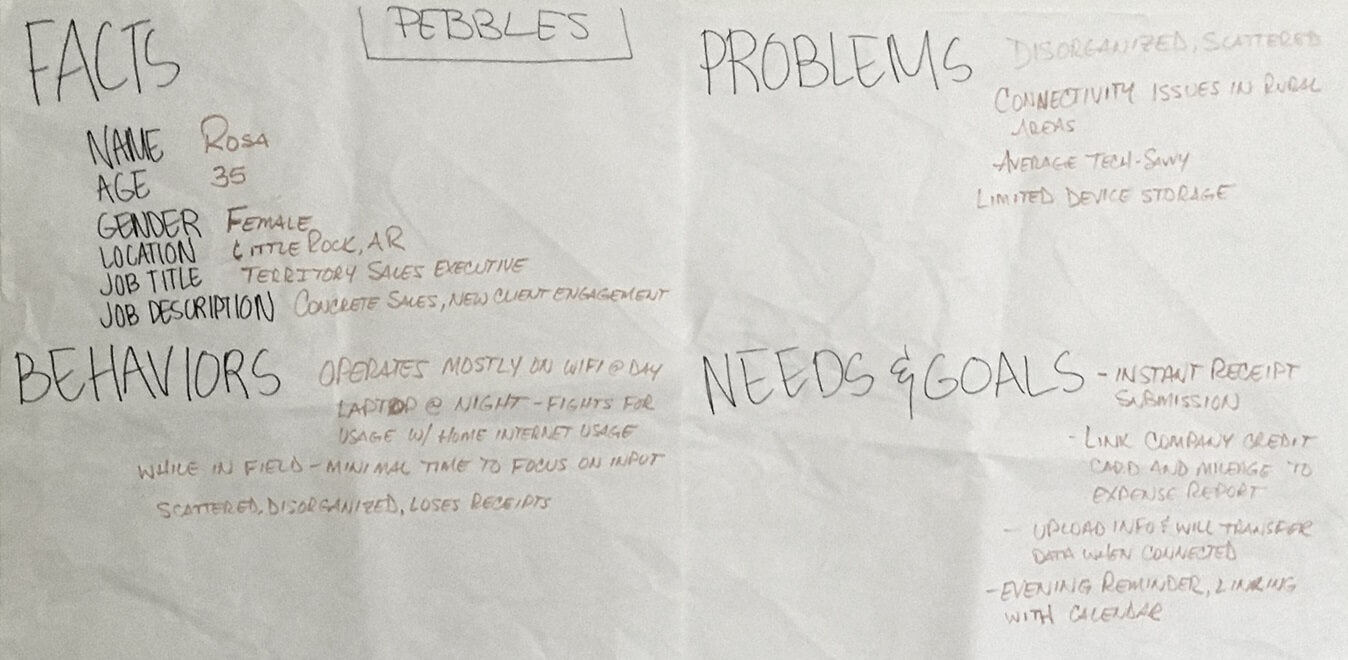 PEBBLES
FACTS
NAME ROSA
AGE 35
GENDER FEMALE
LOCATION LITTLE ROCK, AR
JOB TITLE TERRITORY SALES EXECUTIVE
JOB DESCRIPTION CONCRETE SALES, NEW CLIENT ENGAGEMENT
PROBLEMS DISORGANIZED, SCATTERED
CONNECTIVITY ISSUES IN RURAL
AREAS
-AVERAGE TECH-SAVVY
LIMITED DEVICE STORAGE
BEHAVIORS OPERATES MOSTLY ON WIFI @ DAY
LAPTOP @ NIGHT - FIGHTS FOR
USAGE W/ HOME INTERNET USAGE
WHILE IN FIELD - MINIMAL TIME TO FOCUS ON INPUT
SCATTERED, DISORGANIZED, LOSES RECEIPTS
NEEDS & GOALS - INSTANT RECEIPT
SUBMISSION
- LINK COMPANY CREDIT
CARD AND MILEAGE TO
EXPENSE REPORT
- UPLOAD INFO & WILL TRANSFER
DATA WHEN CONNECTED
- EVENING REMINDER, LINKING
WITH CALENDAR